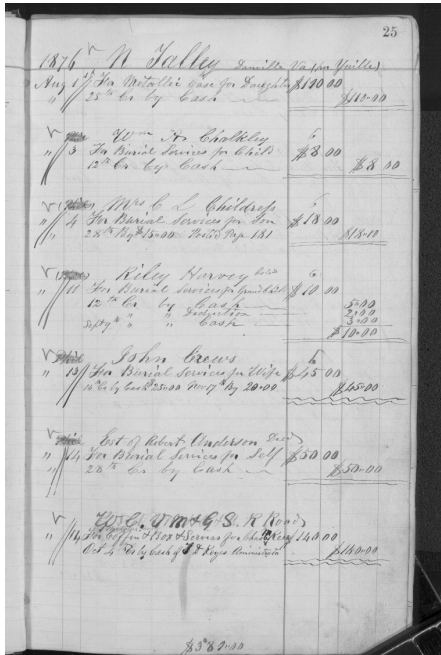 25
1876 N Talley Danville Va
Aug 1st For Metallic Case for Daughter $110 00
" 25th Cr by Cash $110-00
Wm H Chalkley
" 3 For Burial Services for Child $8 00
12th Cr by Cash $8 00
Mrs C L Childress
" 4 For Burial Services for Son $18 00
" 28th By 15-00 Page 181 $18-00
Riley Harvey
" 11 For Burial Services for Grand Child $10 00
12th Cr by Cash 5-00
" " Deduction 2-00
Sept 9th " " Cash 3-00
$10-00
John Crews
" 13 For Burial Services for Wife $45 00
Cr by Cash 25-00 Nov 17th By 20-00 $45-00
Est of Robert Anderson Decd
" 14 For Burial Services for Self $50 00
" 28th Cr by Cash $50-00
W. C. V. M & G S. R Road
" 14 For Coffin & Box & Services for 140 00
Oct 4 Cr by Cash of $140-00